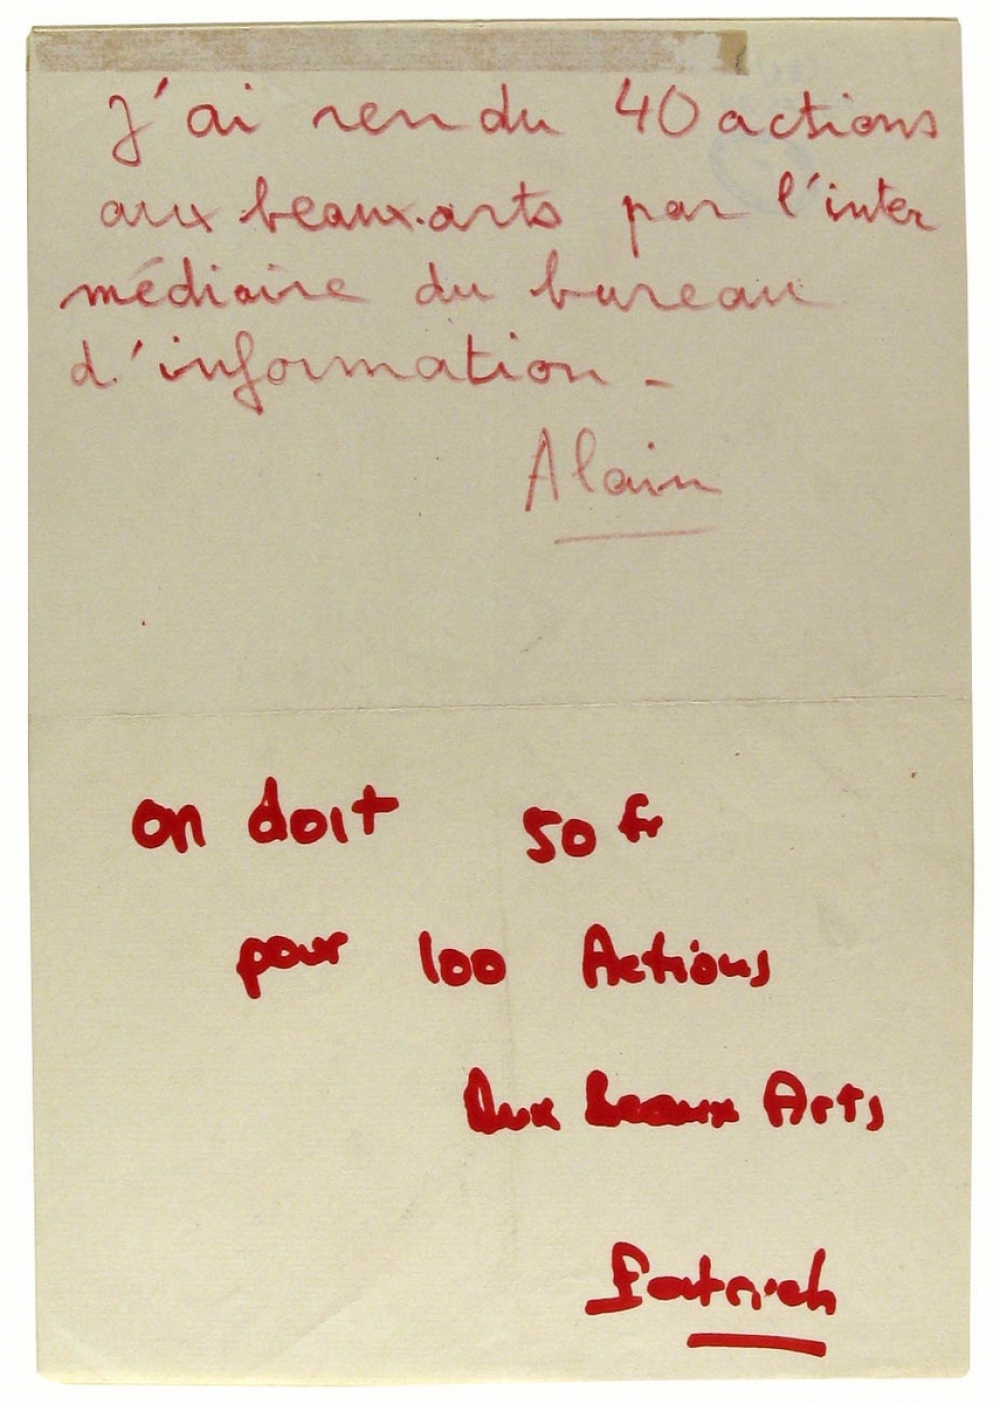 J'ai rendu 40 actions
aux beaux.arts par l'inter
médiaire du bureau
d'information -
Alain
on doit 50 fr
pour 100 Actions
Aux beaux Arts